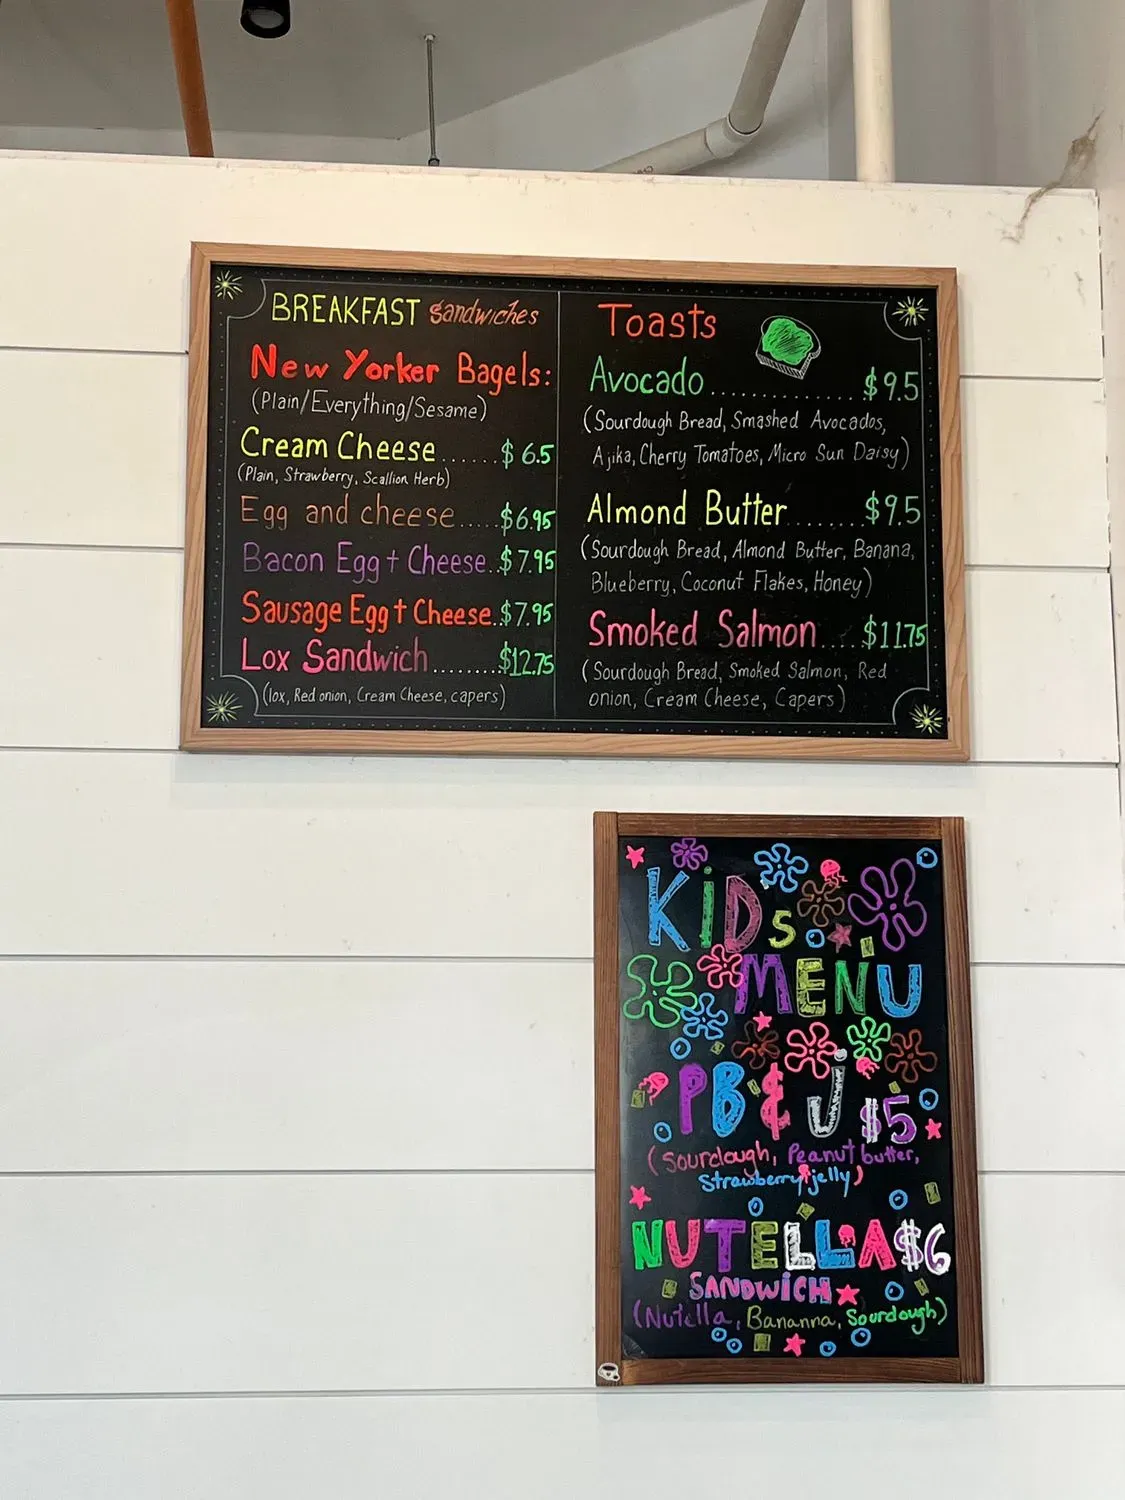 BREAKFAST Sandwiches
New Yorker Bagels:
(Plain/Everything/Sesame)
Cream Cheese......$6.5
(Plain, Strawberry, Scallion Herb)
Egg and cheese.....$6.95
Bacon Egg + Cheese..$7.95
Sausage Egg + Cheese..$7.95
Lox Sandwich........$12.75
(lox, Red onion, Cream Cheese, capers)
Toasts
Avocado..............$9.5
(Sourdough Bread, Smashed Avocados,
Ajika, Cherry Tomatoes, Micro Sun Daisy)
Almond Butter........$9.5
(Sourdough Bread, Almond Butter, Banana,
Blueberry, Coconut Flakes, Honey)
Smoked Salmon.....$11.75
(Sourdough Bread, Smoked Salmon, Red
onion, Cream Cheese, Capers)
KiDs
MENU
PB & J $5
(Sourdough, Peanut butter,
Strawberry jelly)
NUTELLA $6
SANDWiCH
(Nutella, Bananna, Sourdough)